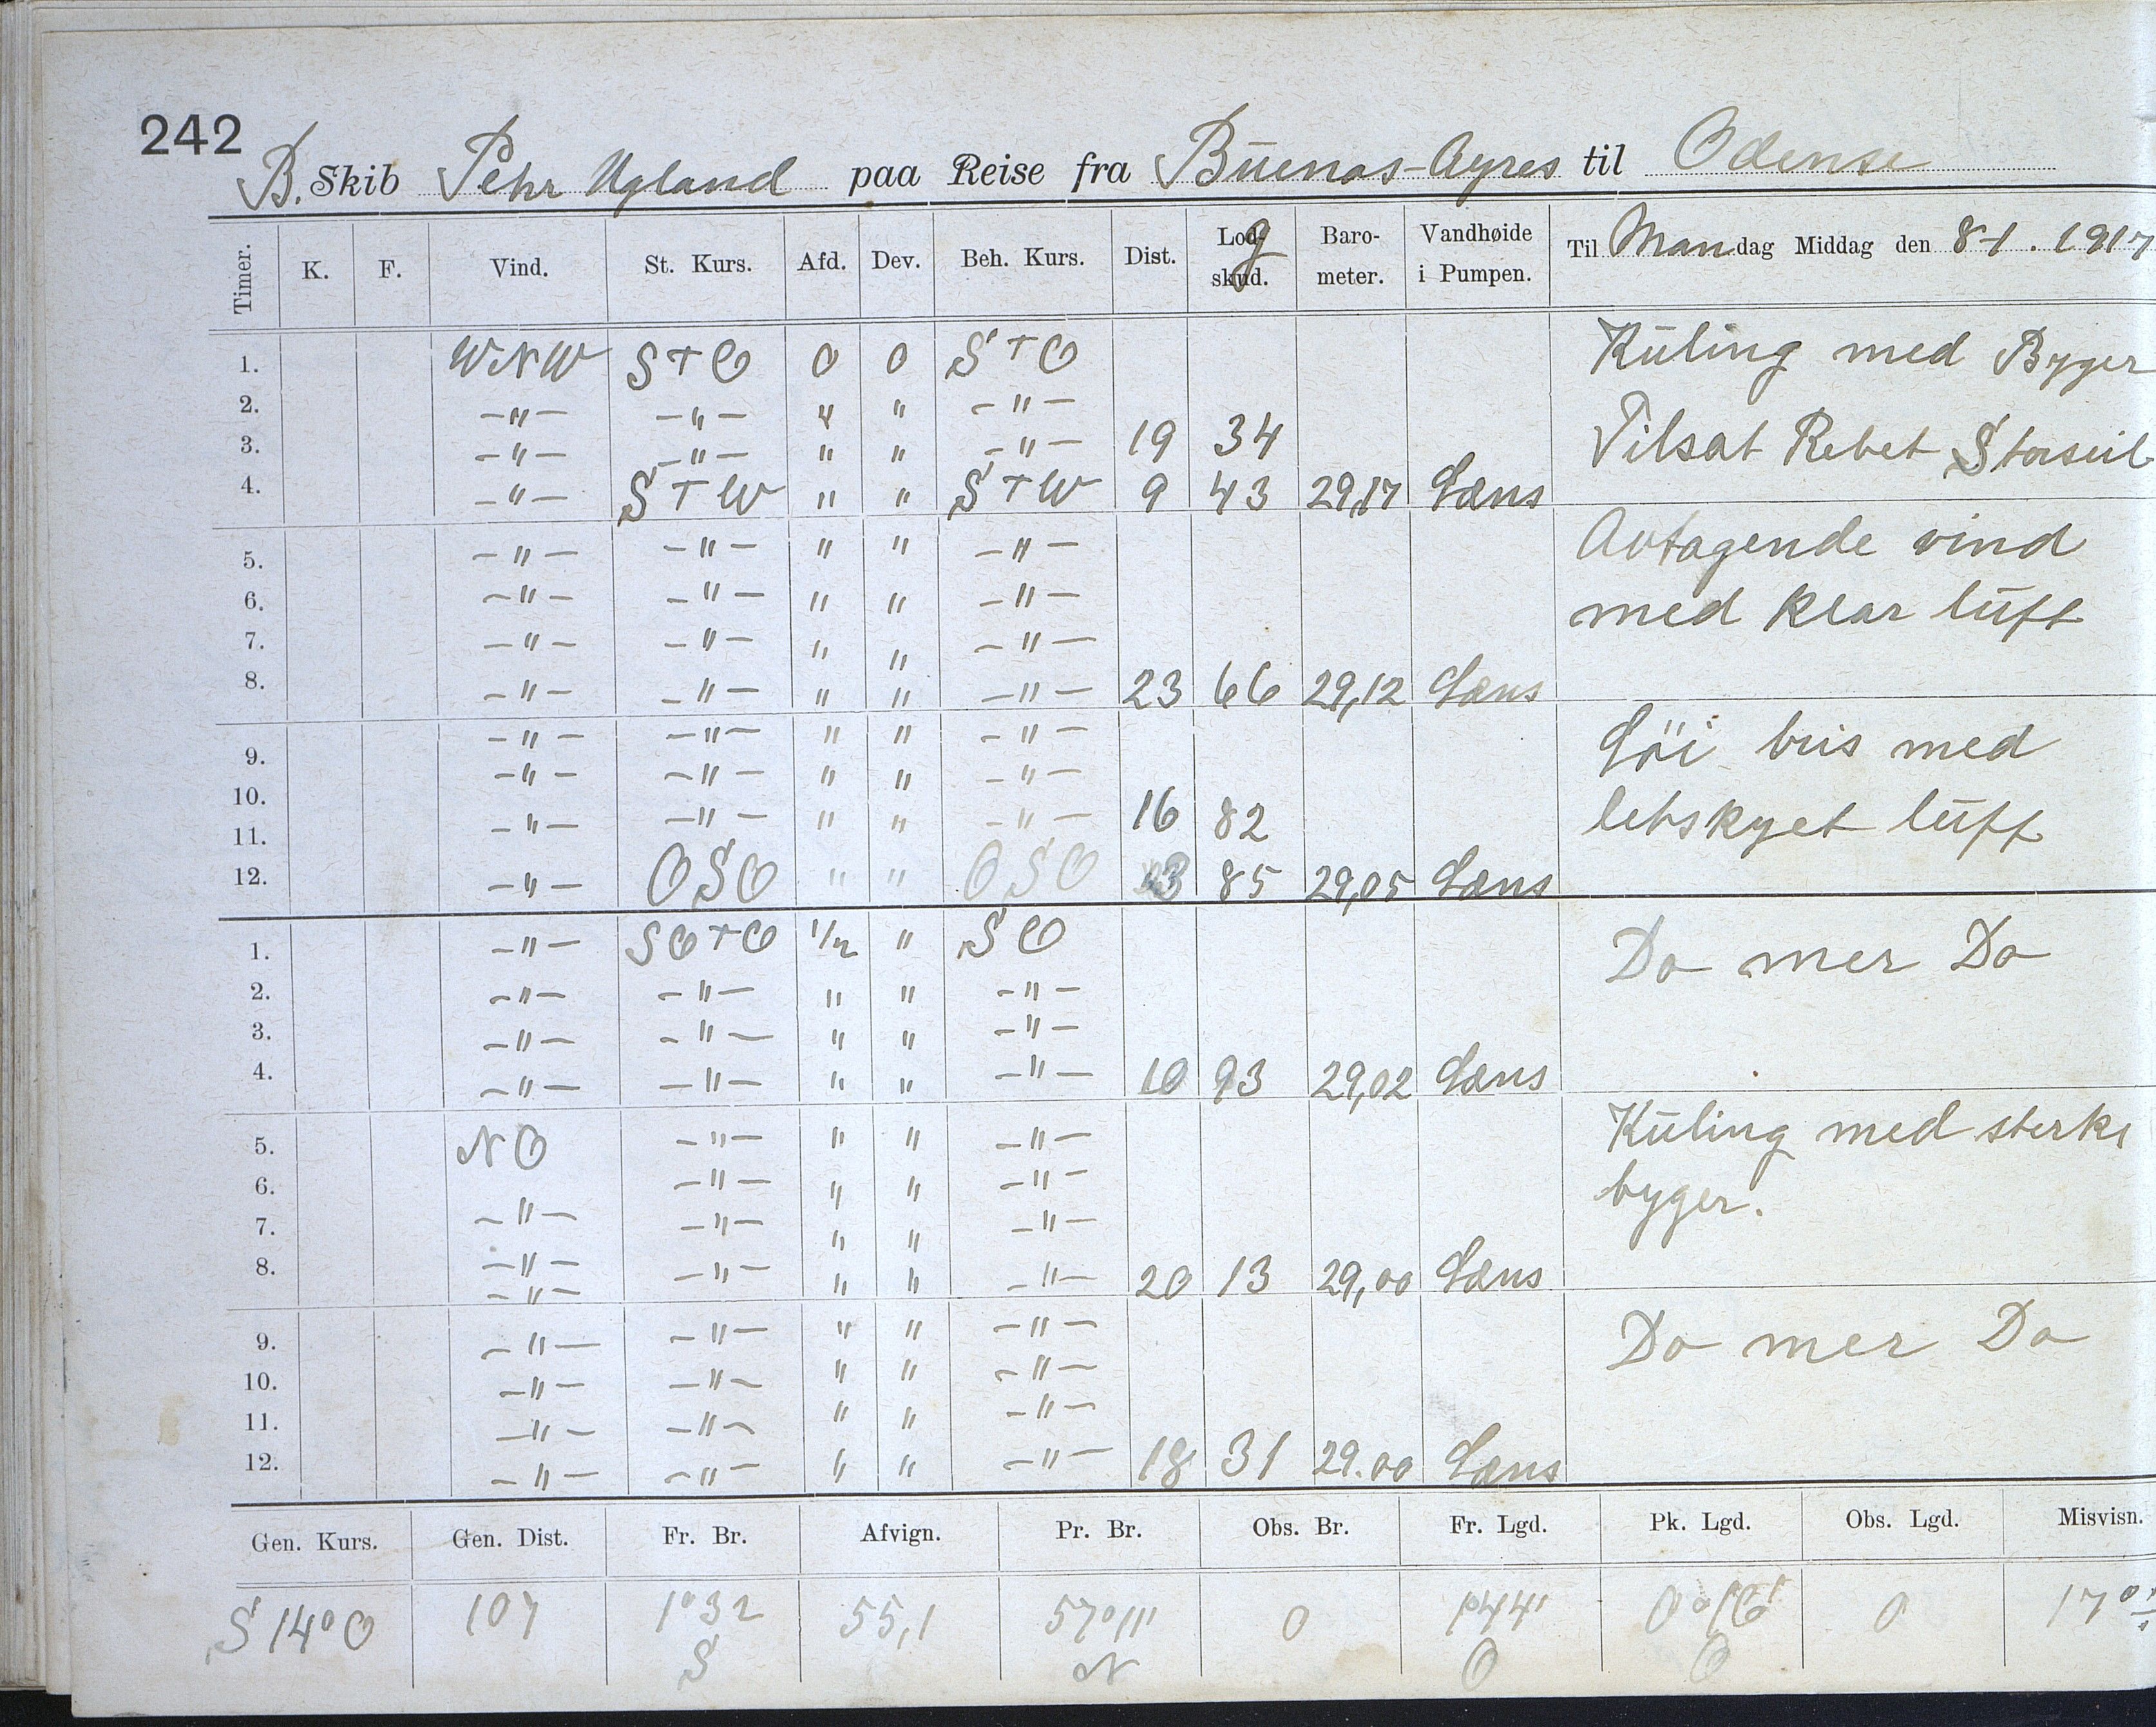 242
B. Skib Pehr Ugland paa Reise fra Buenos-Ayres til Odense
Timer. K. F. Vind. St. Kurs. Afd. Dev. Beh. Kurs. Dist. Log- skud. Baro- meter. Vandhøide i Pumpen. Til Mandag Middag den 8-1. 1917
1. WNW S т O 0 0 S т O Kuling med Byger
2. -"- -"- " " -"-
3. -"- -"- " " -"- 19 34 Tilsat Rebet Storseil
4. -"- S т W " " S т W 9 43 29,17 Læns
5. -"- -"- " " -"- Avtagende vind
6. -"- -"- " " -"- med klar luft
7. -"- -"- " " -"-
8. -"- -"- " " -"- 23 66 29,12 Læns
9. -"- -"- " " -"- Löi bris med
10. -"- -"- " " -"-
11. -"- -"- " " -"- 16 82 letskyet luft
12. -"- OSO " " OSO 3 85 29,05 Læns
1. -"- SO т O 1/2 " SO Do mer Do
2. -"- -"- " " -"-
3. -"- -"- " " -"-
4. -"- -"- " " -"- 10 93 29,02 Læns
5. NO -"- " " -"- Kuling med sterke
6. -"- -"- " " -"- byger.
7. -"- -"- " " -"-
8. -"- -"- " " -"- 20 13 29,00 Læns
9. -"- -"- " " -"- Do mer Do
10. -"- -"- " " -"-
11. -"- -"- " " -"-
12. -"- -"- " " -"- 18 31 29.00 Læns
Gen. Kurs. Gen. Dist. Fr. Br. Afvign. Pr. Br. Obs. Br. Fr. Lgd. Pk. Lgd. Obs. Lgd. Misvisn.
S 14° O 107 1°32 55,1 57°11' 0 1°44' 0°16' 0 17°
S N O O